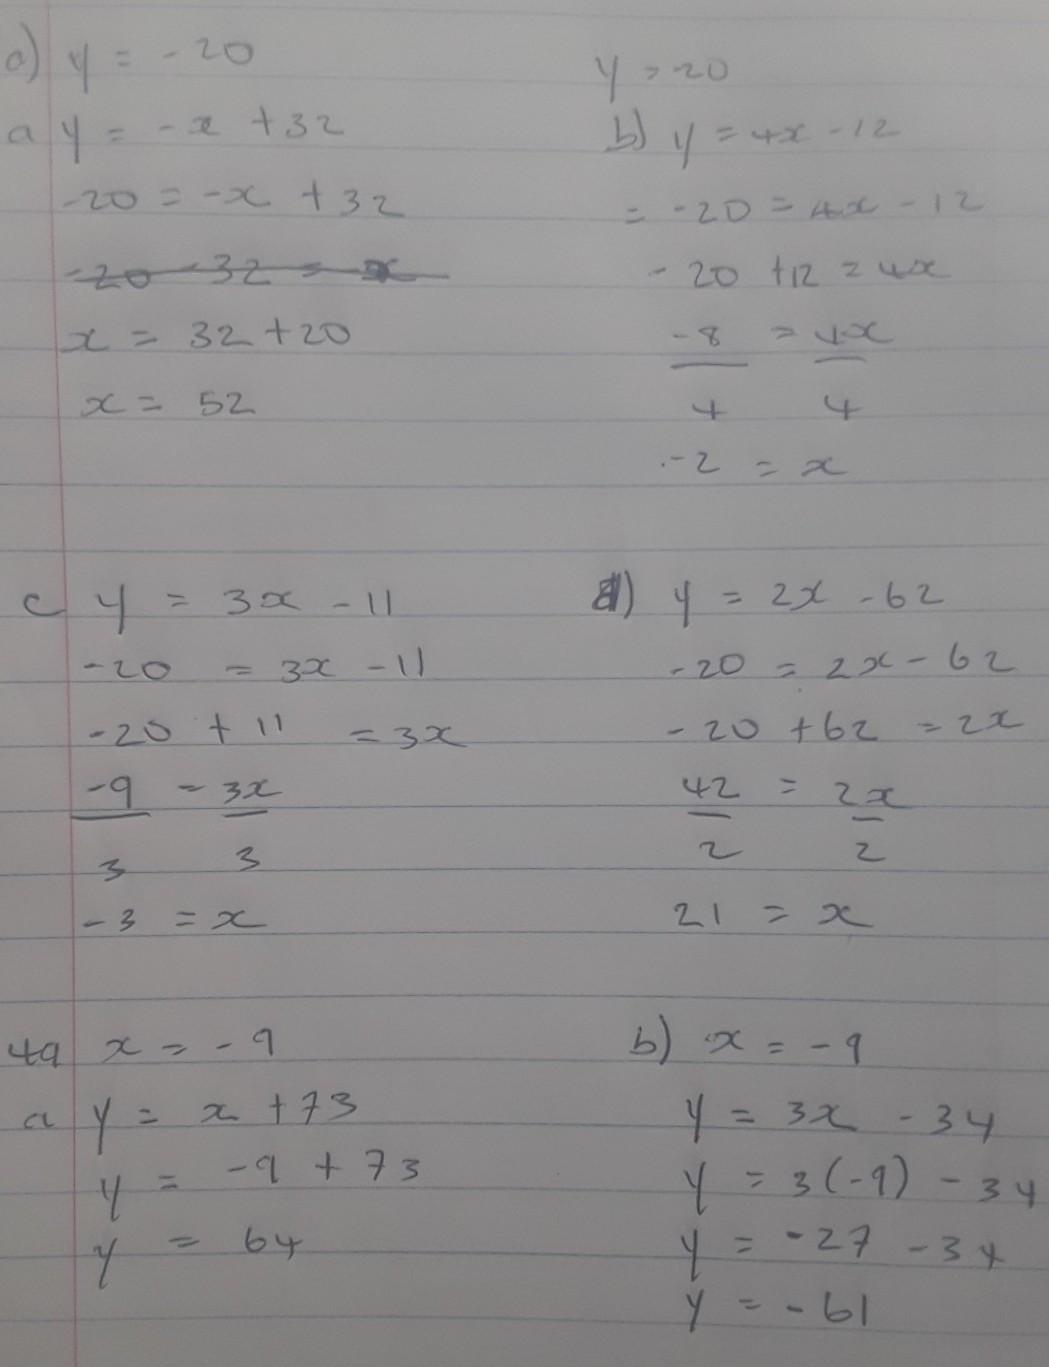 a) y = -20
a y = -x + 32
-20 = -x + 32
-20 - 32 = -x
x = 32 + 20
x = 52
y = -20
b) y = 4x - 12
= -20 = 4x - 12
-20 + 12 = 4x
-8 = 4x
4 4
-2 = x
c y = 3x - 11
-20 = 3x - 11
-20 + 11 = 3x
-9 = 3x
3 3
-3 = x
d) y = 2x - 62
-20 = 2x - 62
-20 + 62 = 2x
42 = 2x
2 2
21 = x
4a x = -9
a y = x + 73
y = -9 + 73
y = 64
b) x = -9
y = 3x - 34
y = 3(-9) - 34
y = -27 - 34
y = -61